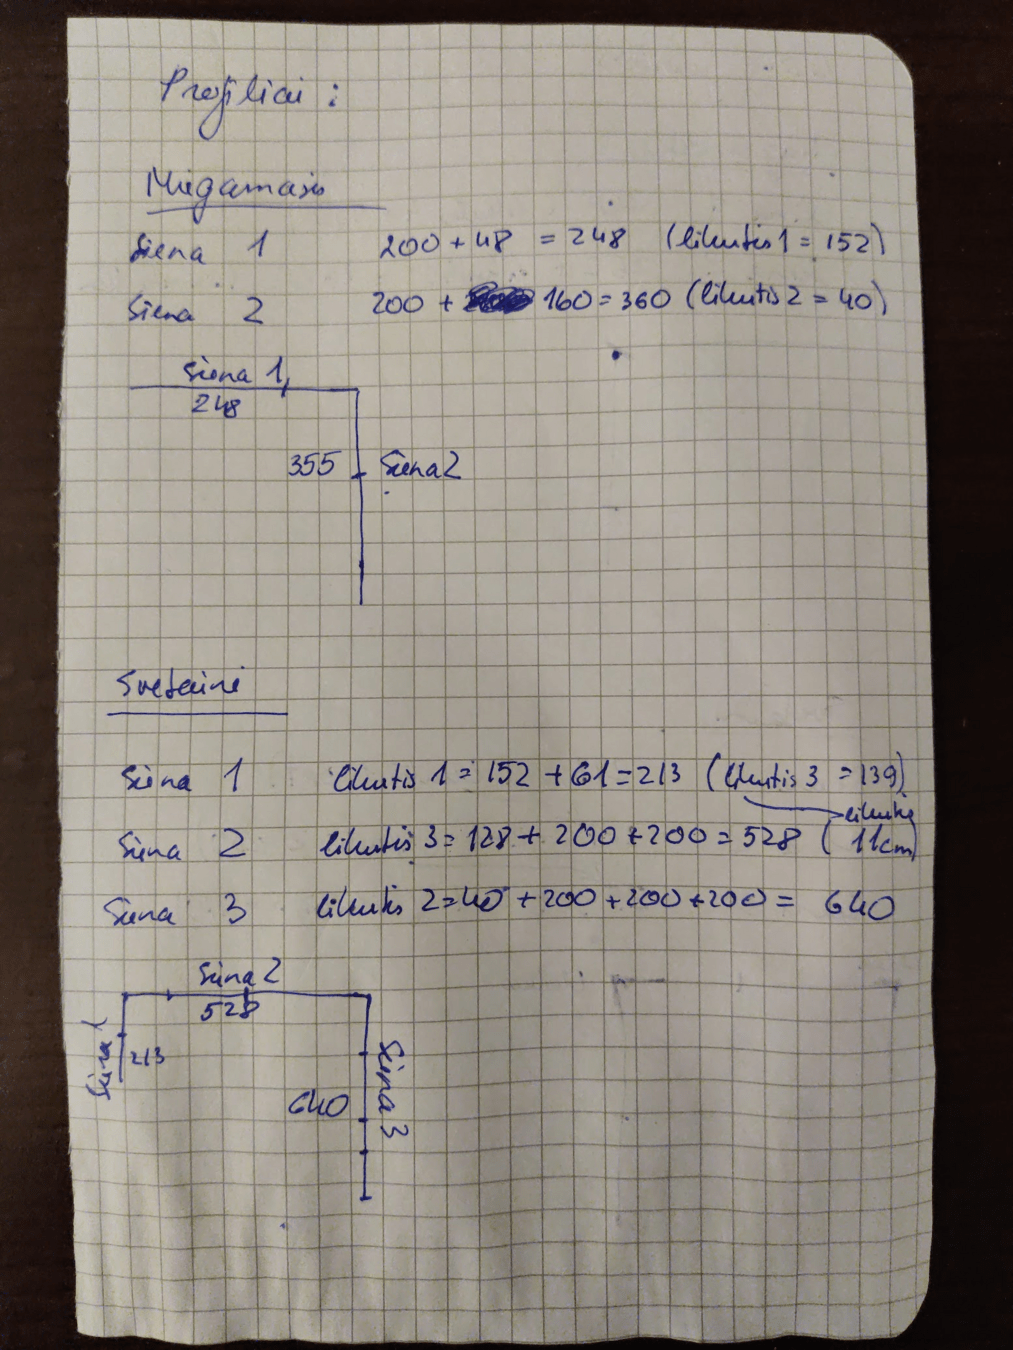 Profiliai :
Miegamasis
Siena 1 200 + 48 = 248 (likutis 1 = 152)
Siena 2 200 + 160 = 360 (likutis 2 = 40)
Siena 1
248
355 Siena 2
Svetainė
Siena 1 likutis 1 = 152 + 61 = 213 (likutis 3 = 139)
likutis
Siena 2 likutis 3 = 128 + 200 + 200 = 528 (11cm)
Siena 3 likutis 2 = 40 + 200 + 200 + 200 = 640
Siena 2
528
Siena 1
213
640
Siena 3